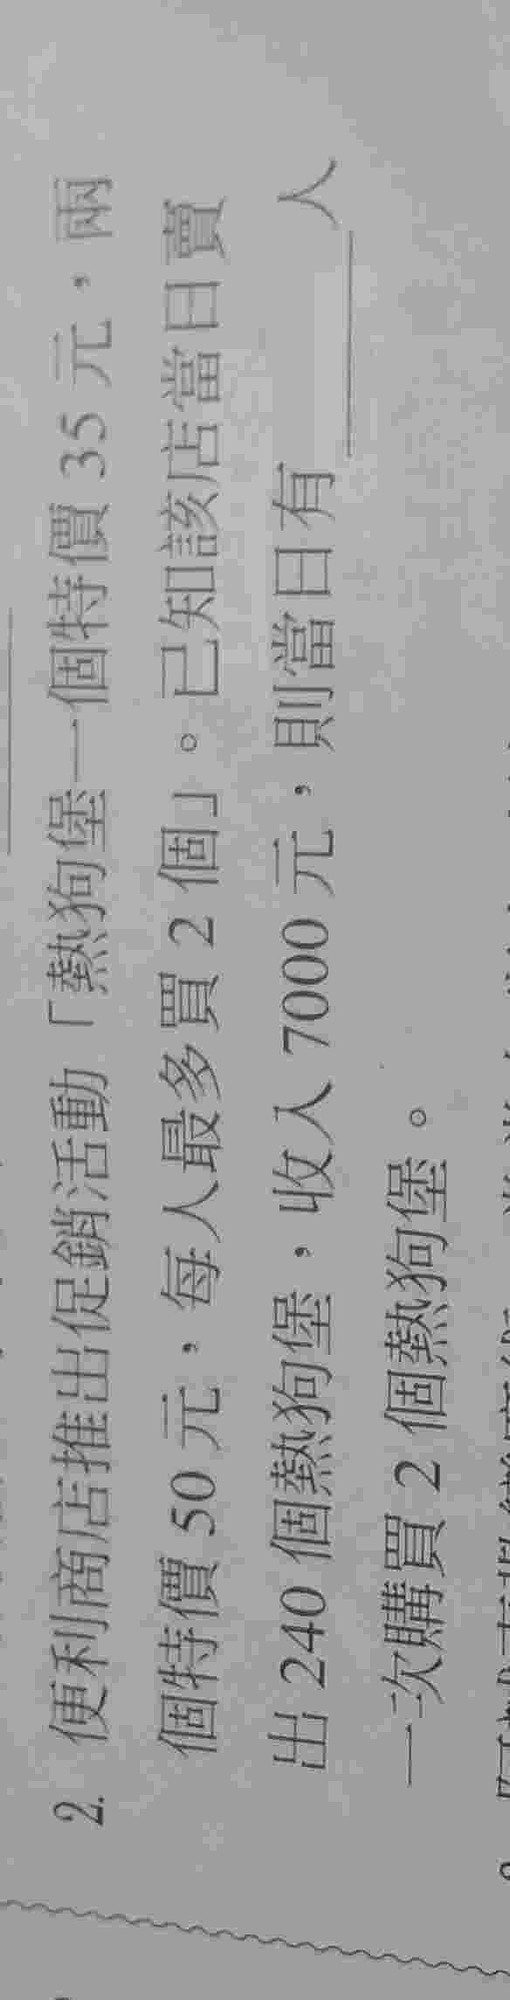 2. 便利商店推出促銷活動「熱狗堡一個特價 35 元，兩
個特價 50 元，每人最多買 2 個」。已知該店當日賣
出 240 個熱狗堡，收入 7000 元，則當日有＿＿＿＿人
一次購買 2 個熱狗堡。